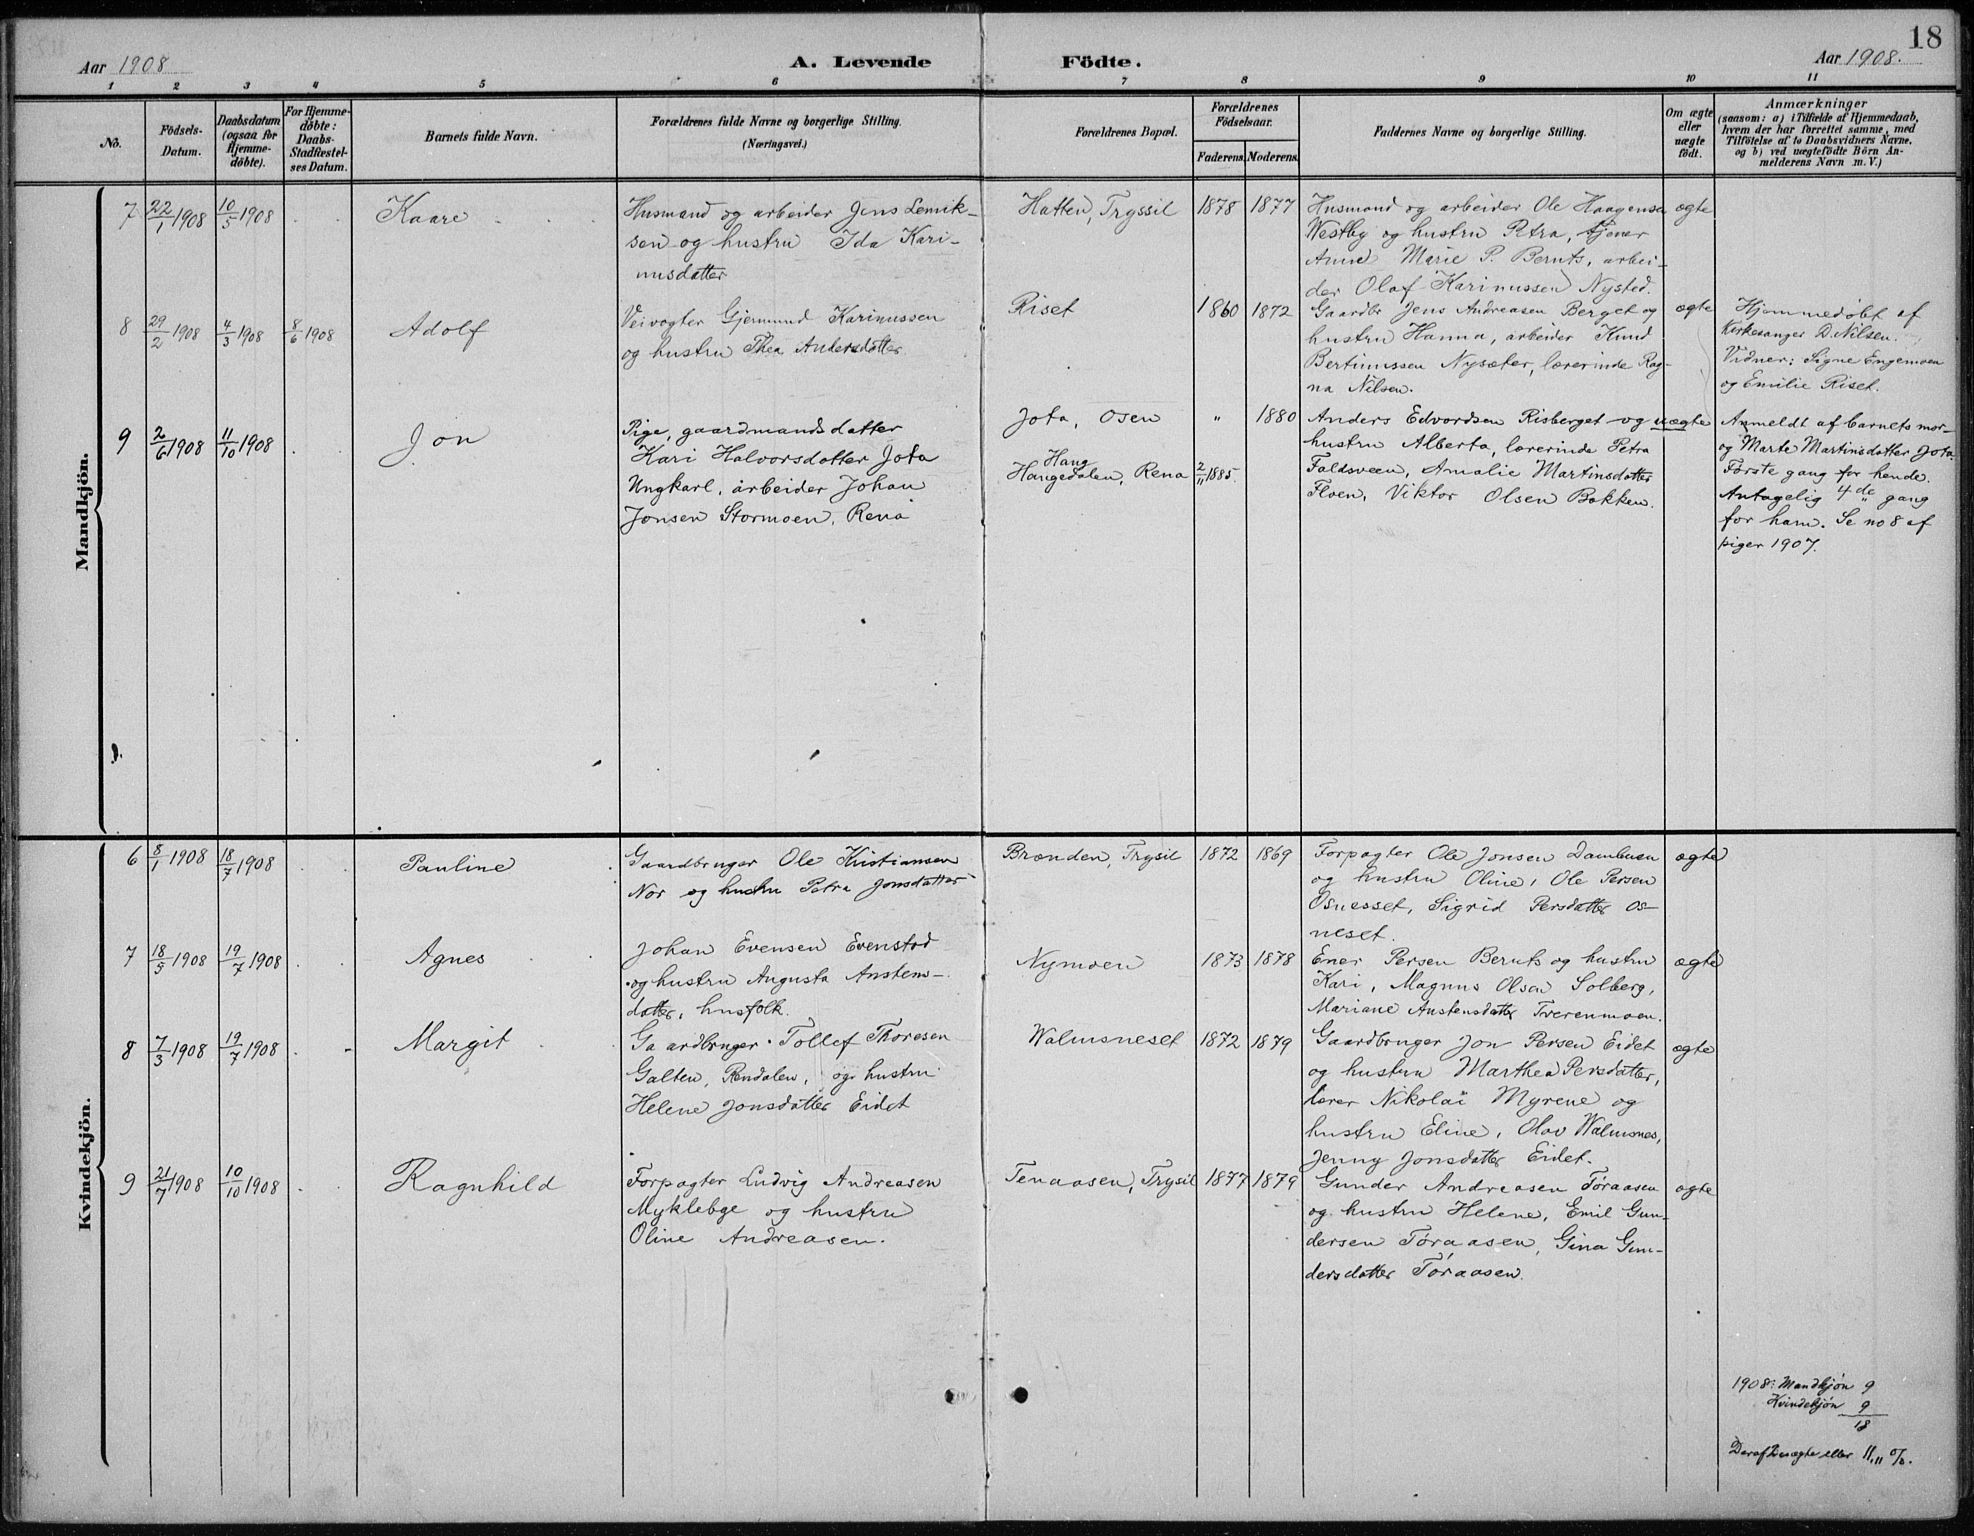 18
Aar 1908
A. Levende Födte.
Aar 1908.
1 2 3 4 5 6 7 8 9 10 11
No.
Födsels-
Datum.
Daabsdatum
(ogsaa for
Hjemme-
døbte).
For Hjemme-
døbte:
Daabs-
Stadfæstel-
ses Datum.
Barnets fulde Navn.
Forældrenes fulde Navne og borgerlige Stilling.
(Næringsvei.)
Forældrenes Bopæl.
Forældrenes
Födselsaar.
Faderens. Moderens.
Faddernes Navne og borgerlige Stilling.
Om ægte
eller
uægte
födt.
Anmærkninger
(saasom: a) i Tilfælde af Hjemmedaab,
hvem der har forrettet samme, med
Tilföielse af to Daabsvidners Navne,
og b) ved uægtefödte Börn An-
melderens Navn m. V.)
Mandkjön.
7 22/1 1908 10/5 1908 Kaare
Husmand og arbeider Jens Lemik-
sen og hustru Ida Kari-
nusdatter
Hatten, Tryssil 1878 1877
Husmand og arbeider Ole Haagensen
Vestby og hustru Petra, tjener
Anne Marie P. Beruts, arbei-
der Olaf Karinussen Nysted.
ægte
8 29/2 1908 4/3 1908 8/6 1908 Adolf
Veivogter Gjermund Karinussen
og hustru Thea Andersdatter
Riset 1860 1872
Gaardbr Jens Andreasen Berget og
hustru Hanna, arbeider Knud
Bertinussen Nysæter, lærerinde Rag-
na Nilsen.
ægte
Hjemmedøbt af
Kirkesanger D. Nilsen.
Vidner: Signe Engemoen
og Emilie Riset.
9 2/6 1908 11/10 1908 Jon
Pige, gaardmandsdatter
Kari Halvorsdatter Jota
Ungkarl, arbeider Johan
Jonsen Stormoen, Rena
Jota, Osen " 1880
Haug
Haugedalen, Rena 2/11 1885.
Anders Edvardsen Risberget og
hustru Alberta, lærerinde Petra
Faldsveen, Amalie Martinsdatter
Floen, Viktor Olsen Bakken.
uægte
Anmeldt af barnets mor-
og Marte Martinsdatter Jota.
Første gang for hende.
Antagelig 4de gang
for ham. Se no 8 af
piger 1907.
Kvindekjön.
6 8/1 1908 18/7 1908 Pauline
Gaardbruger Ole Kristiansen
Nor og hustru Petra Jonsdatter
Brænden, Trysil 1872 1869
Forpagter Ole Jonsen Dambuen
og hustru Oline, Ole Persen
Osnesset, Sigrid Persdatter Os-
neset.
ægte
7 18/5 1908 19/7 1908 Agnes
Johan Evensen Evenstad
og hustru Augusta Austens-
datter, husfolk.
Nymoen 1873 1878
Ener Persen Beruts og hustru
Kari, Magnus Olsen Solberg,
Mariane Austensdatter Tverenmoen.
ægte
8 7/3 1908 19/7 1908 Margit
Gaardbruger Tollef Thoresen
Galten, Rendalen, og hustru
Helene Jonsdatter Eidet
Walmsneset 1872 1879
Gaardbruger Jon Persen Eidet
og hustru Marthea Persdatter,
lærer Nikolai Myrene og
hustru Eline, Olav Walmsnes,
Jenny Jonsdatter Eidet.
ægte
9 21/7 1908 10/10 1908 Ragnhild
Forpagter Ludvig Andreasen
Myklebye og hustru
Oline Andreasen.
Tenaasen, Trysil 1877 1879
Gunder Andreasen Tøraasen
og hustru Helene, Emil Gun-
dersen Tøraasen, Gina Gun-
dersdatter Tøraasen.
ægte
1908: Mandkjön 9
Kvindekjön 9
18
Deraf 2 uægte eller 11,11 %.